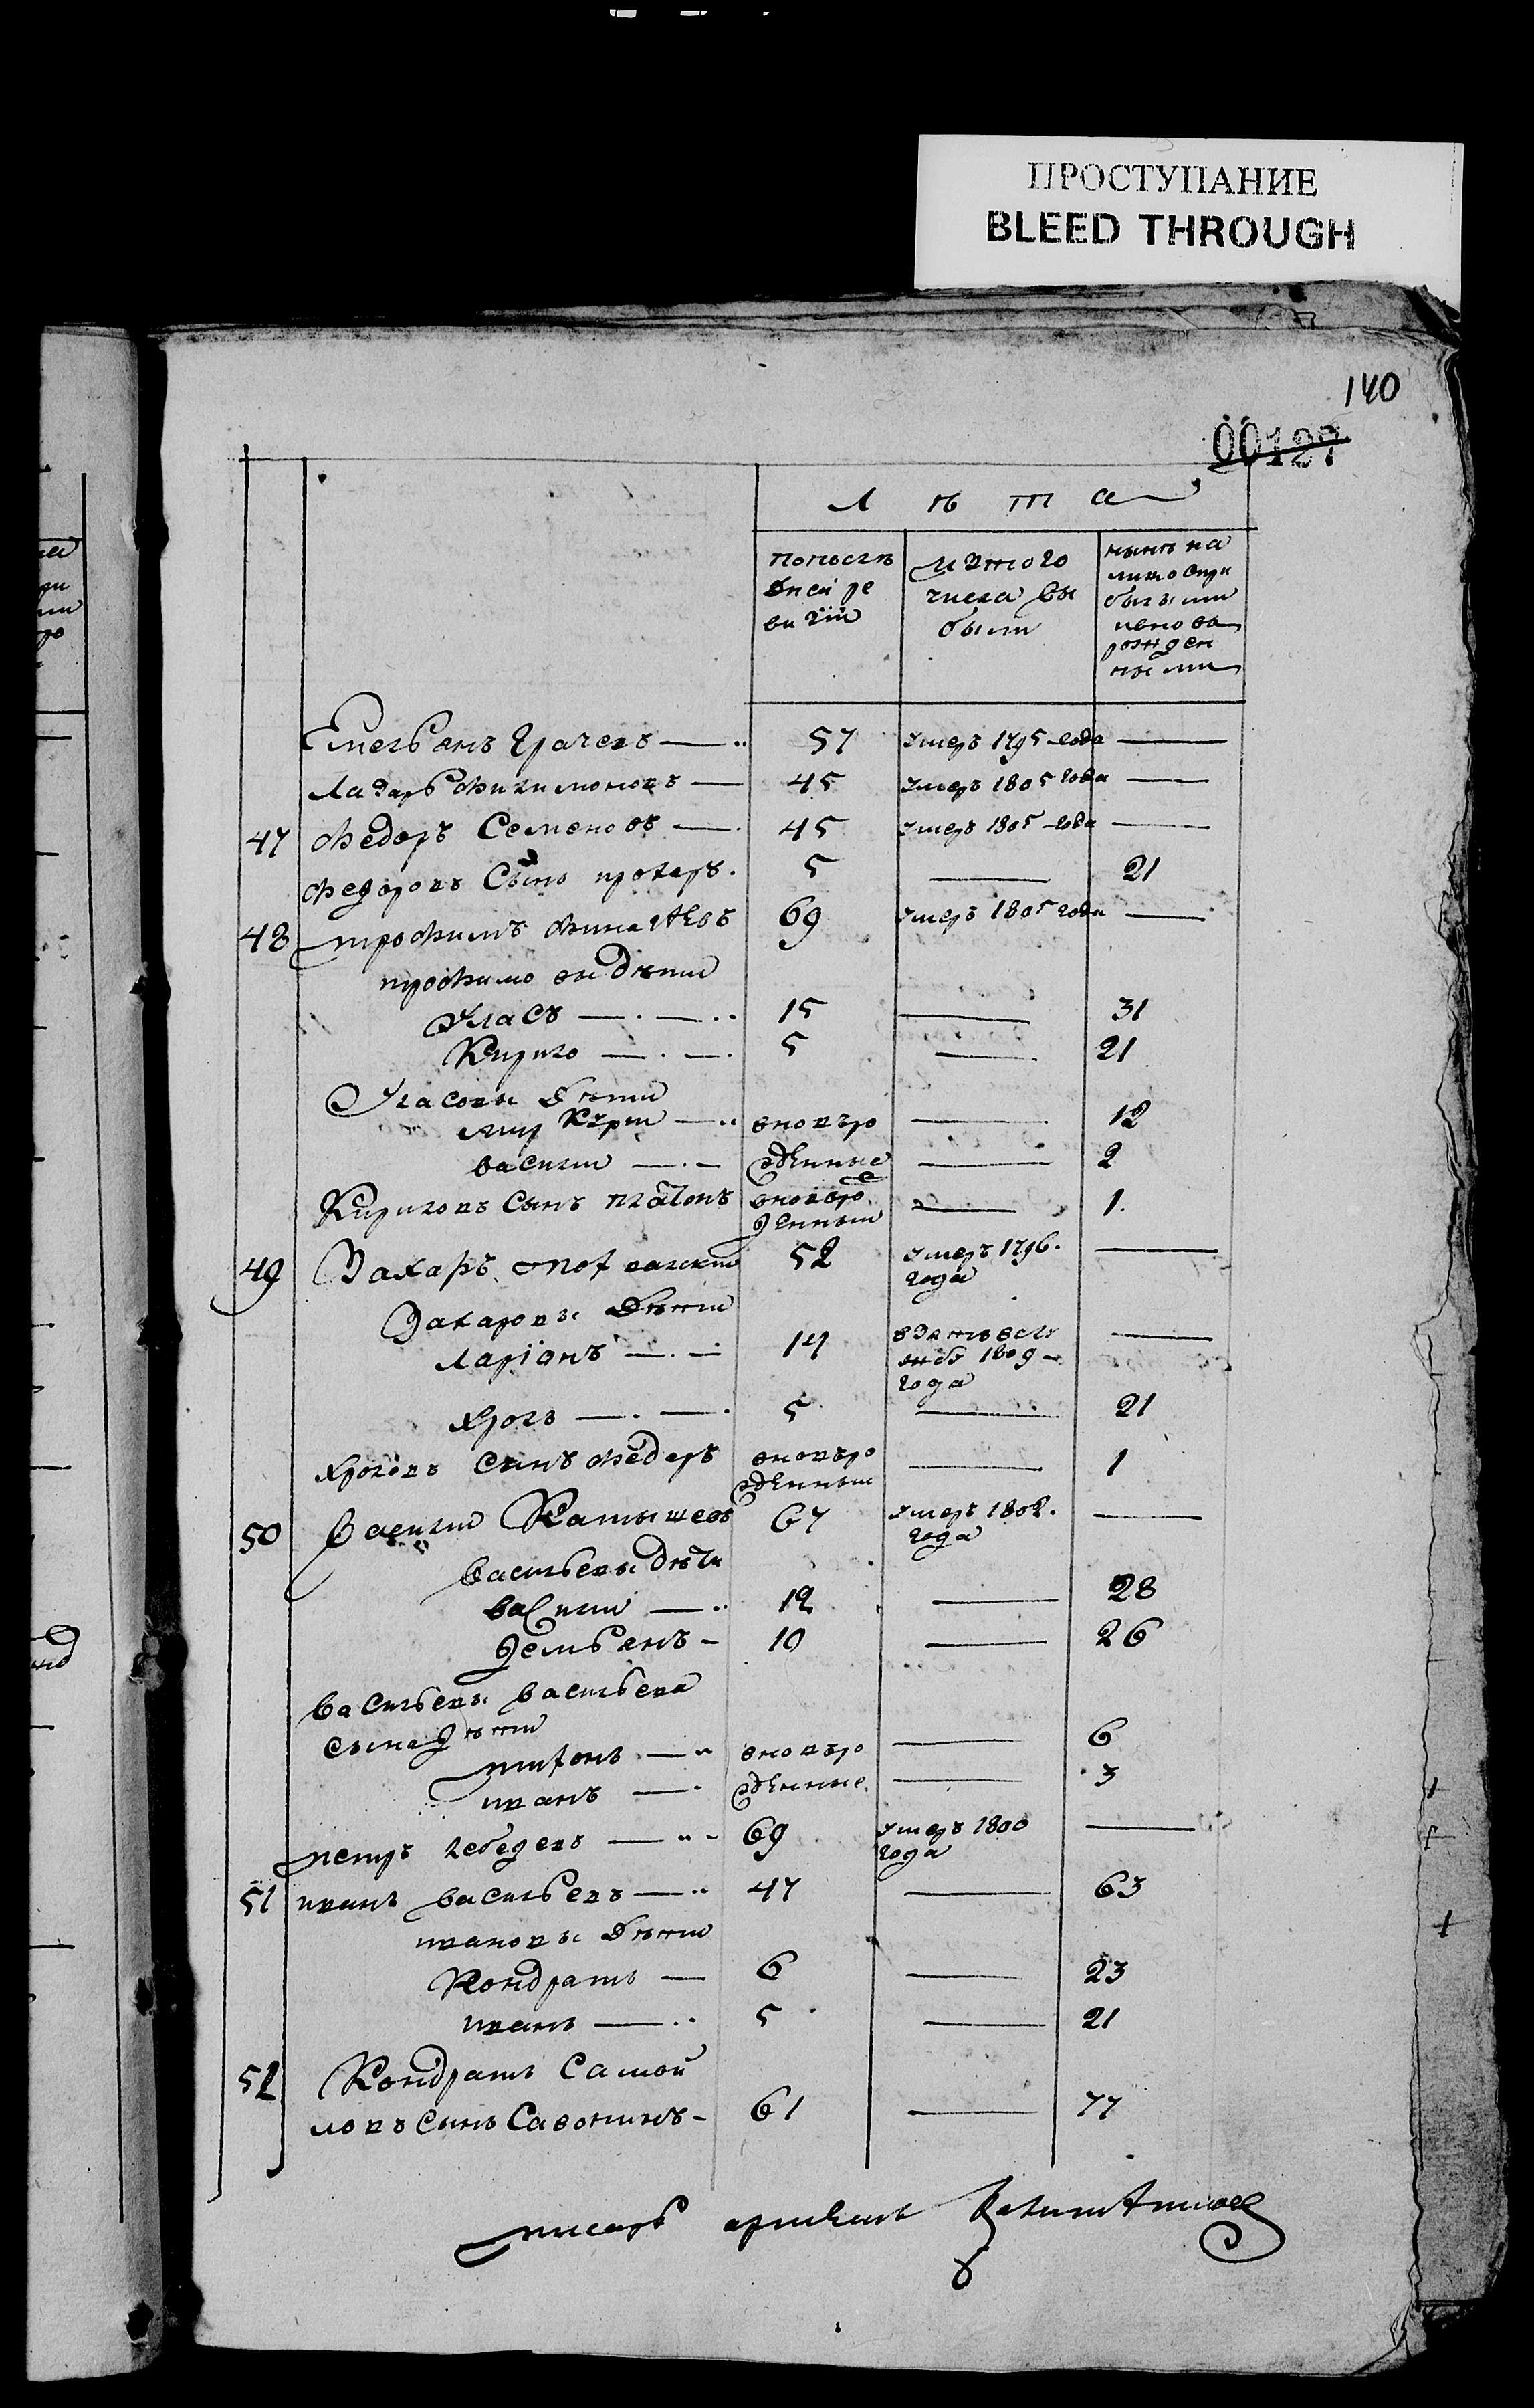 ПРОСТУПАНИЕ
BLEED THROUGH
140
00127
Лѣта
попослѣ
дней ре
визіи
изтого
числа вы
были
нынѣ на
лицо сприбылыми
ивновь
рожден
ными
Емельянъ Грачевъ 57 умеръ 1795 года —
Лазарь Филимоновъ 45 умеръ 1805 года —
47 Федоръ Семеновъ 45 умеръ 1805 года —
Федоровъ Сынъ прохаръ. 5 — 21
48 трофимъ 69 умеръ 1805 года —
трофимовы дѣти
Уласъ 15 — 31
Кирило 5 — 21
Уласовы дѣти
василии вновьрожденные — 2
12
Кириловъ Сынъ платонъ вновьрожденныи — 1.
49 Захаръ 52 умеръ 1796. года —
Захаровы дѣти
Ларіонъ 14 1809 года —
Фролъ 5 — 21
Фроловъ Сынъ Федоръ вновьрожденныи — 1
50 Василии Камышевъ 67 умеръ 1802. года —
васильевы дѣти
василии 12 — 28
демьянъ 10 — 26
васильевы васильева
сына дѣти
вновьро — 6
иванъ жденные — 3
петръ лебедевъ 69 умеръ 1800 года —
51 иванъ васильевъ 47 — 63
ивановы дѣти
Кондратъ 6 — 23
иванъ 5 — 21
52 Кондратъ Самой
ловъ сынъ Савонинъ 61 — 77
писарь